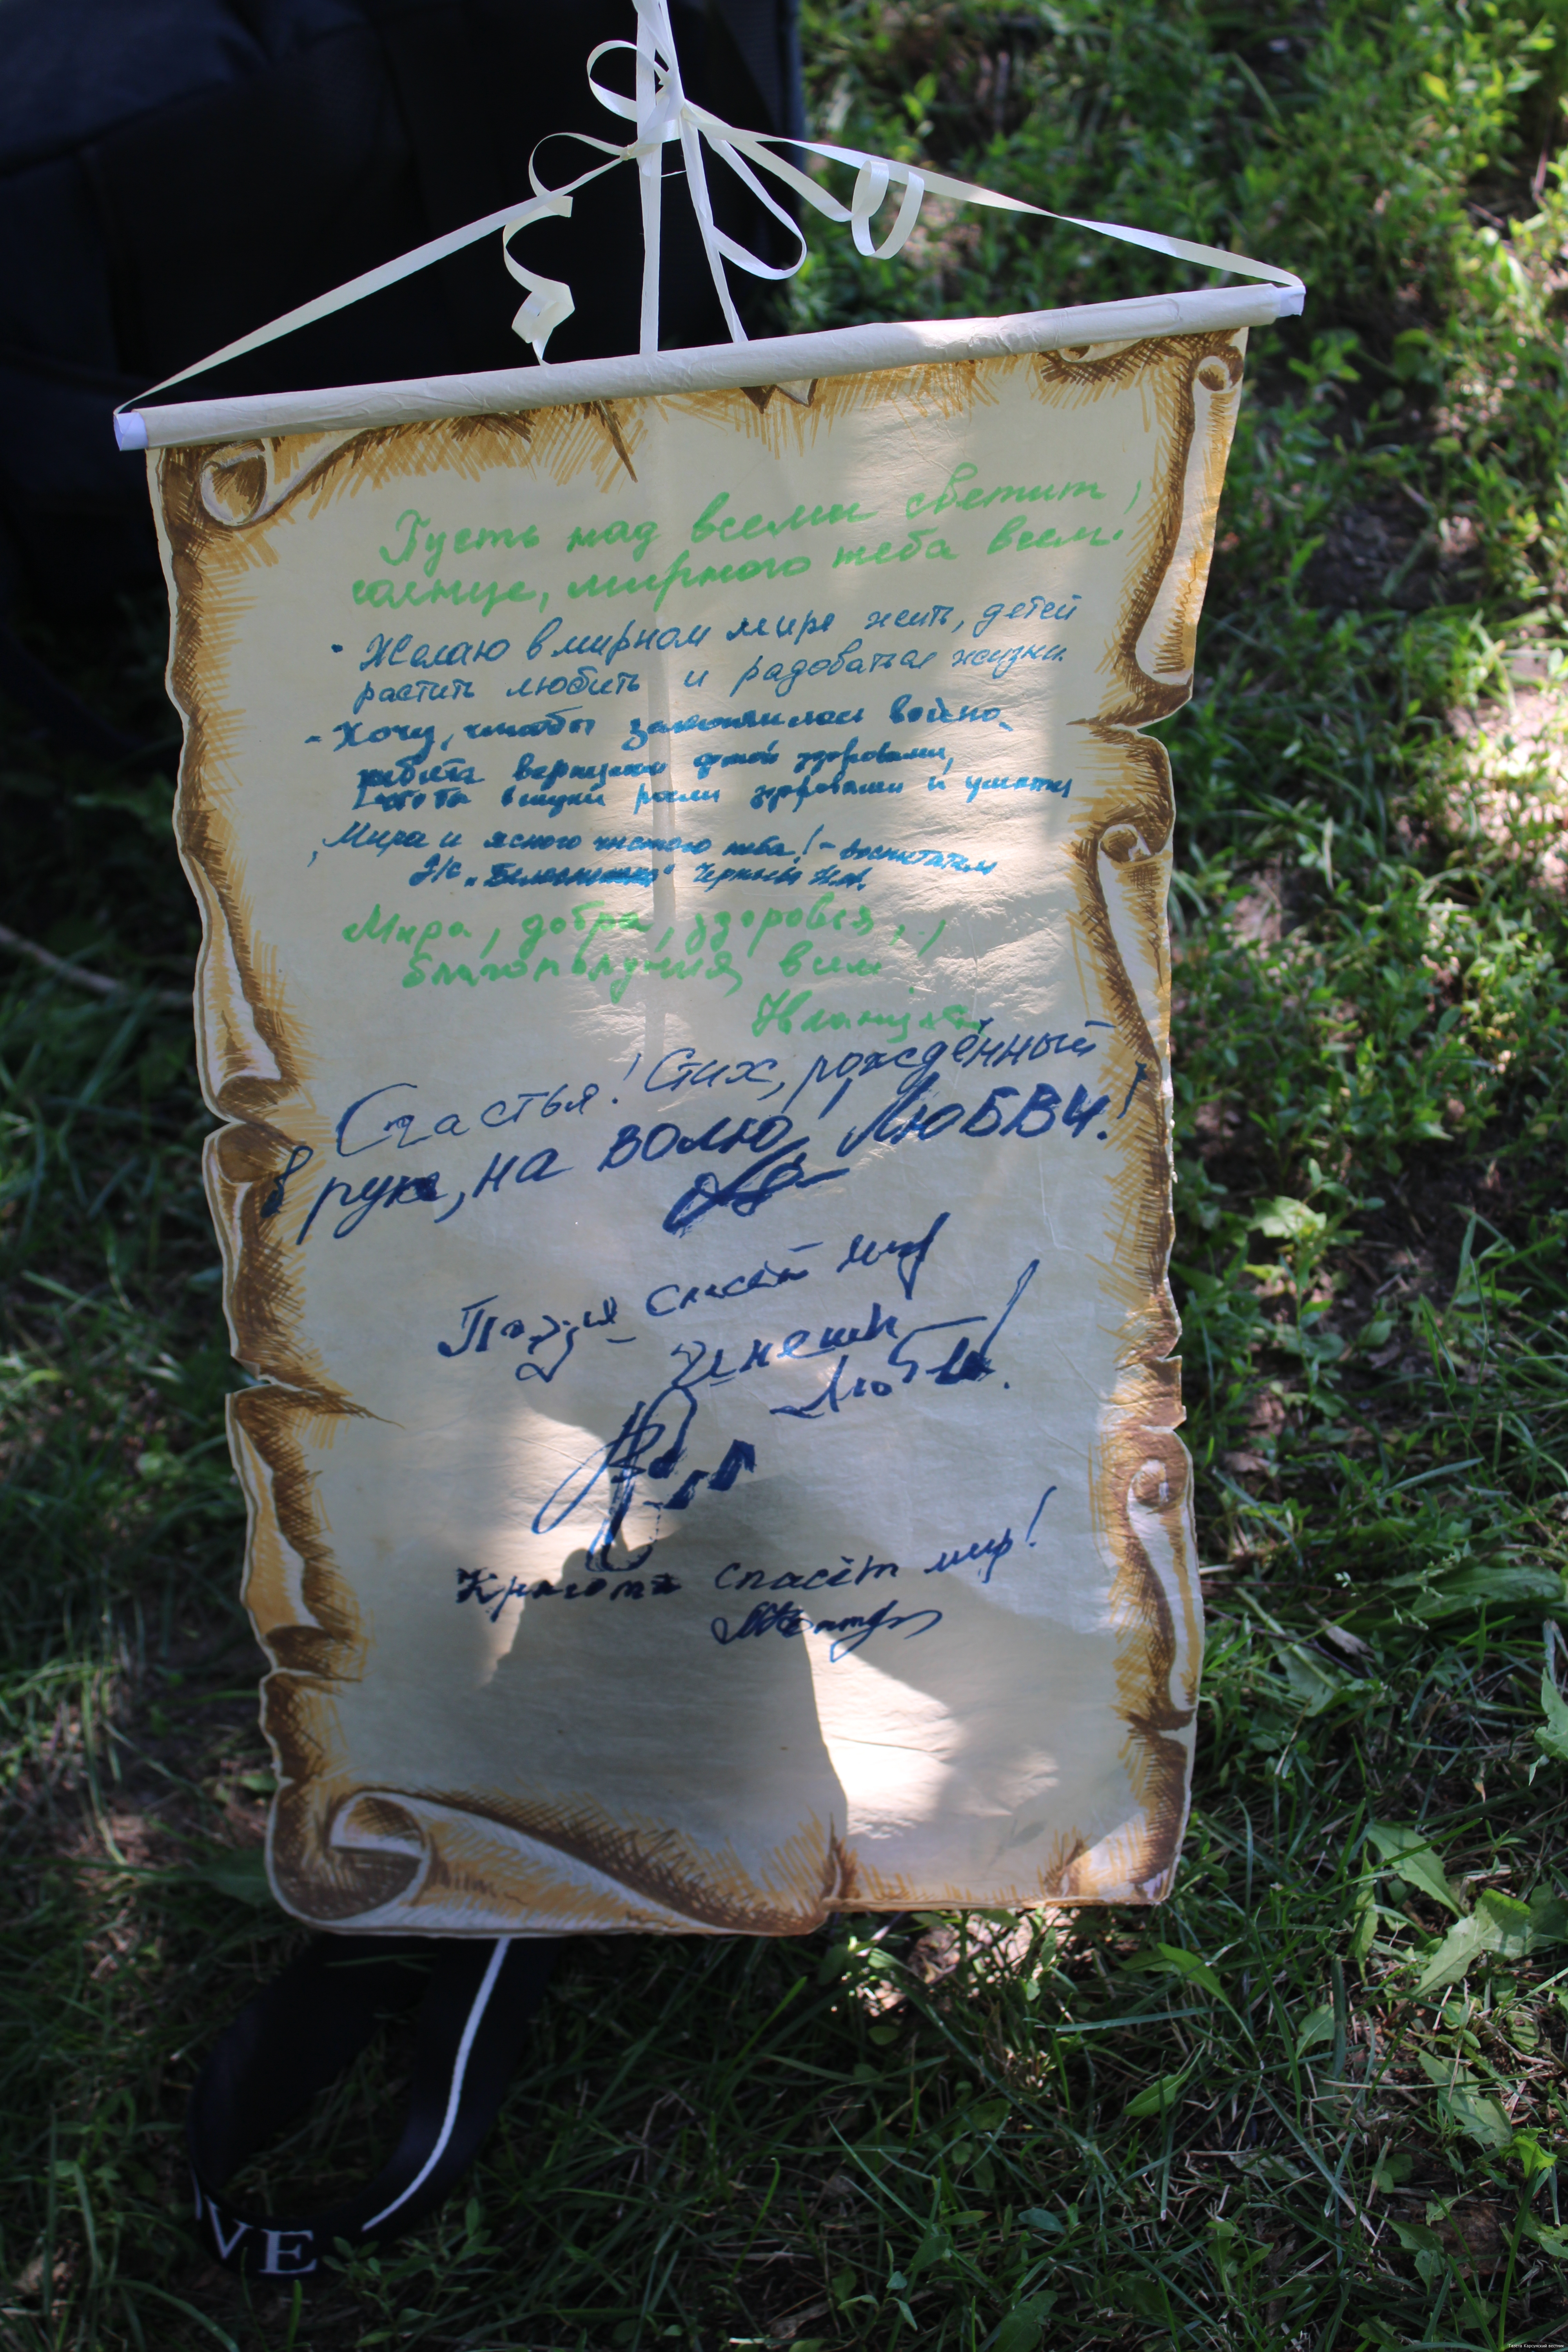 Пусть над всеми светит
солнце, мирного неба всем!
- Желаю в мирном мире жить, детей
растить любить и радоваться жизни
- Хочу, чтобы закончилась война
ребята вернулись домой здоровыми,
внуки росли здоровыми и умными
Мира и ясного чистого неба! - воспитатель
"Белоснежка"
Мира, добра, здоровья,
благополучия всем!
Счастья! Стих, рождённый
в руке, на волю! ЛЮБВИ!
Поэзия спасёт мир
Любви!
Красота спасёт мир!
VE